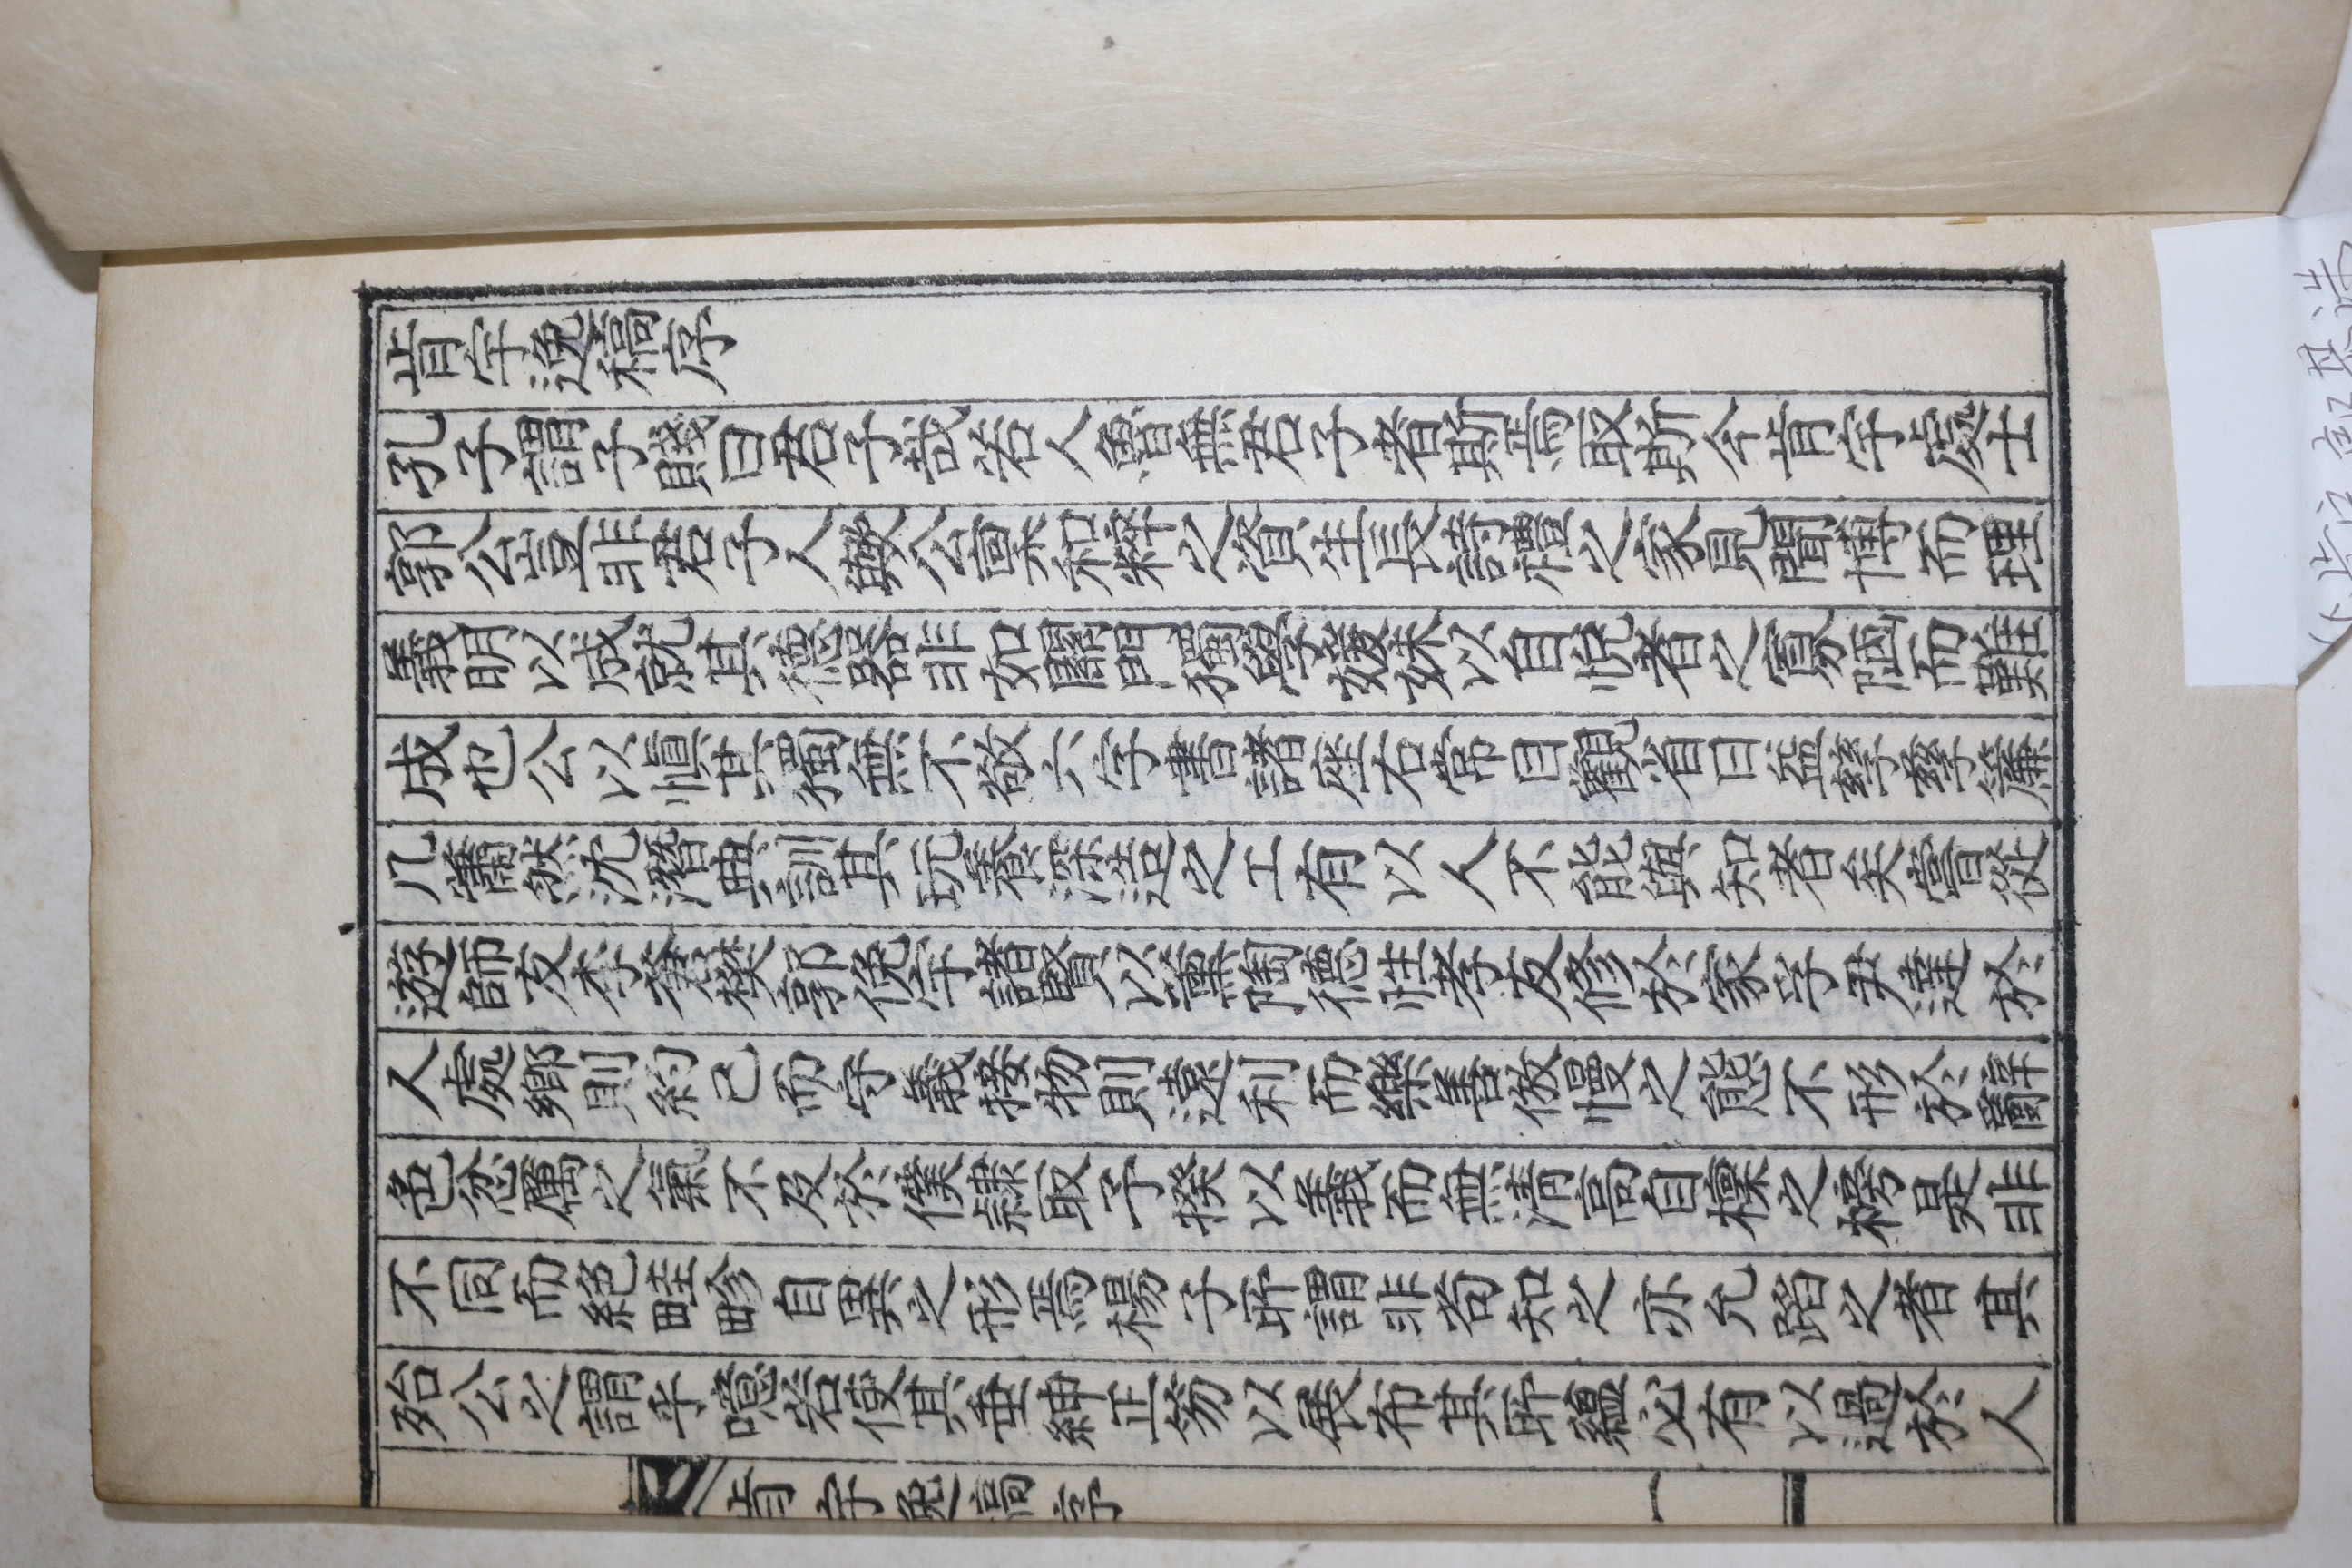 肯宇逸稿序
孔子謂子賤曰君子哉若人魯無君子者斯焉取斯今肯宇處士
郭公豈非君子人歟公稟和粹之資生長詩禮之家見聞博而理
義明以成就其德器非如關門獨學媛姝以自悅者之寡陋而難
成也公以愼其獨無不敬六字書諸座右常目觀省日益孶孶簾
几蕭然沈潛典訓其玩養深造之工有以人不能與知者矣嘗從
遊師友李蒼樊郭俛宇諸賢以薰陶德性孝友修於家孚尹達於
人處鄉則約己而守義接物則遠利而樂善傲慢之態不形於辭
色忿厲之氣不及於僕隷取予揆以義而無淸高自標之榜是非
不同而絶畦畛自異之形焉楊子所謂非苟知之亦允蹈之者其
殆公之謂乎噫若使其垂紳正笏以展布其所蘊必有以過於人
肯宇逸稿序
一